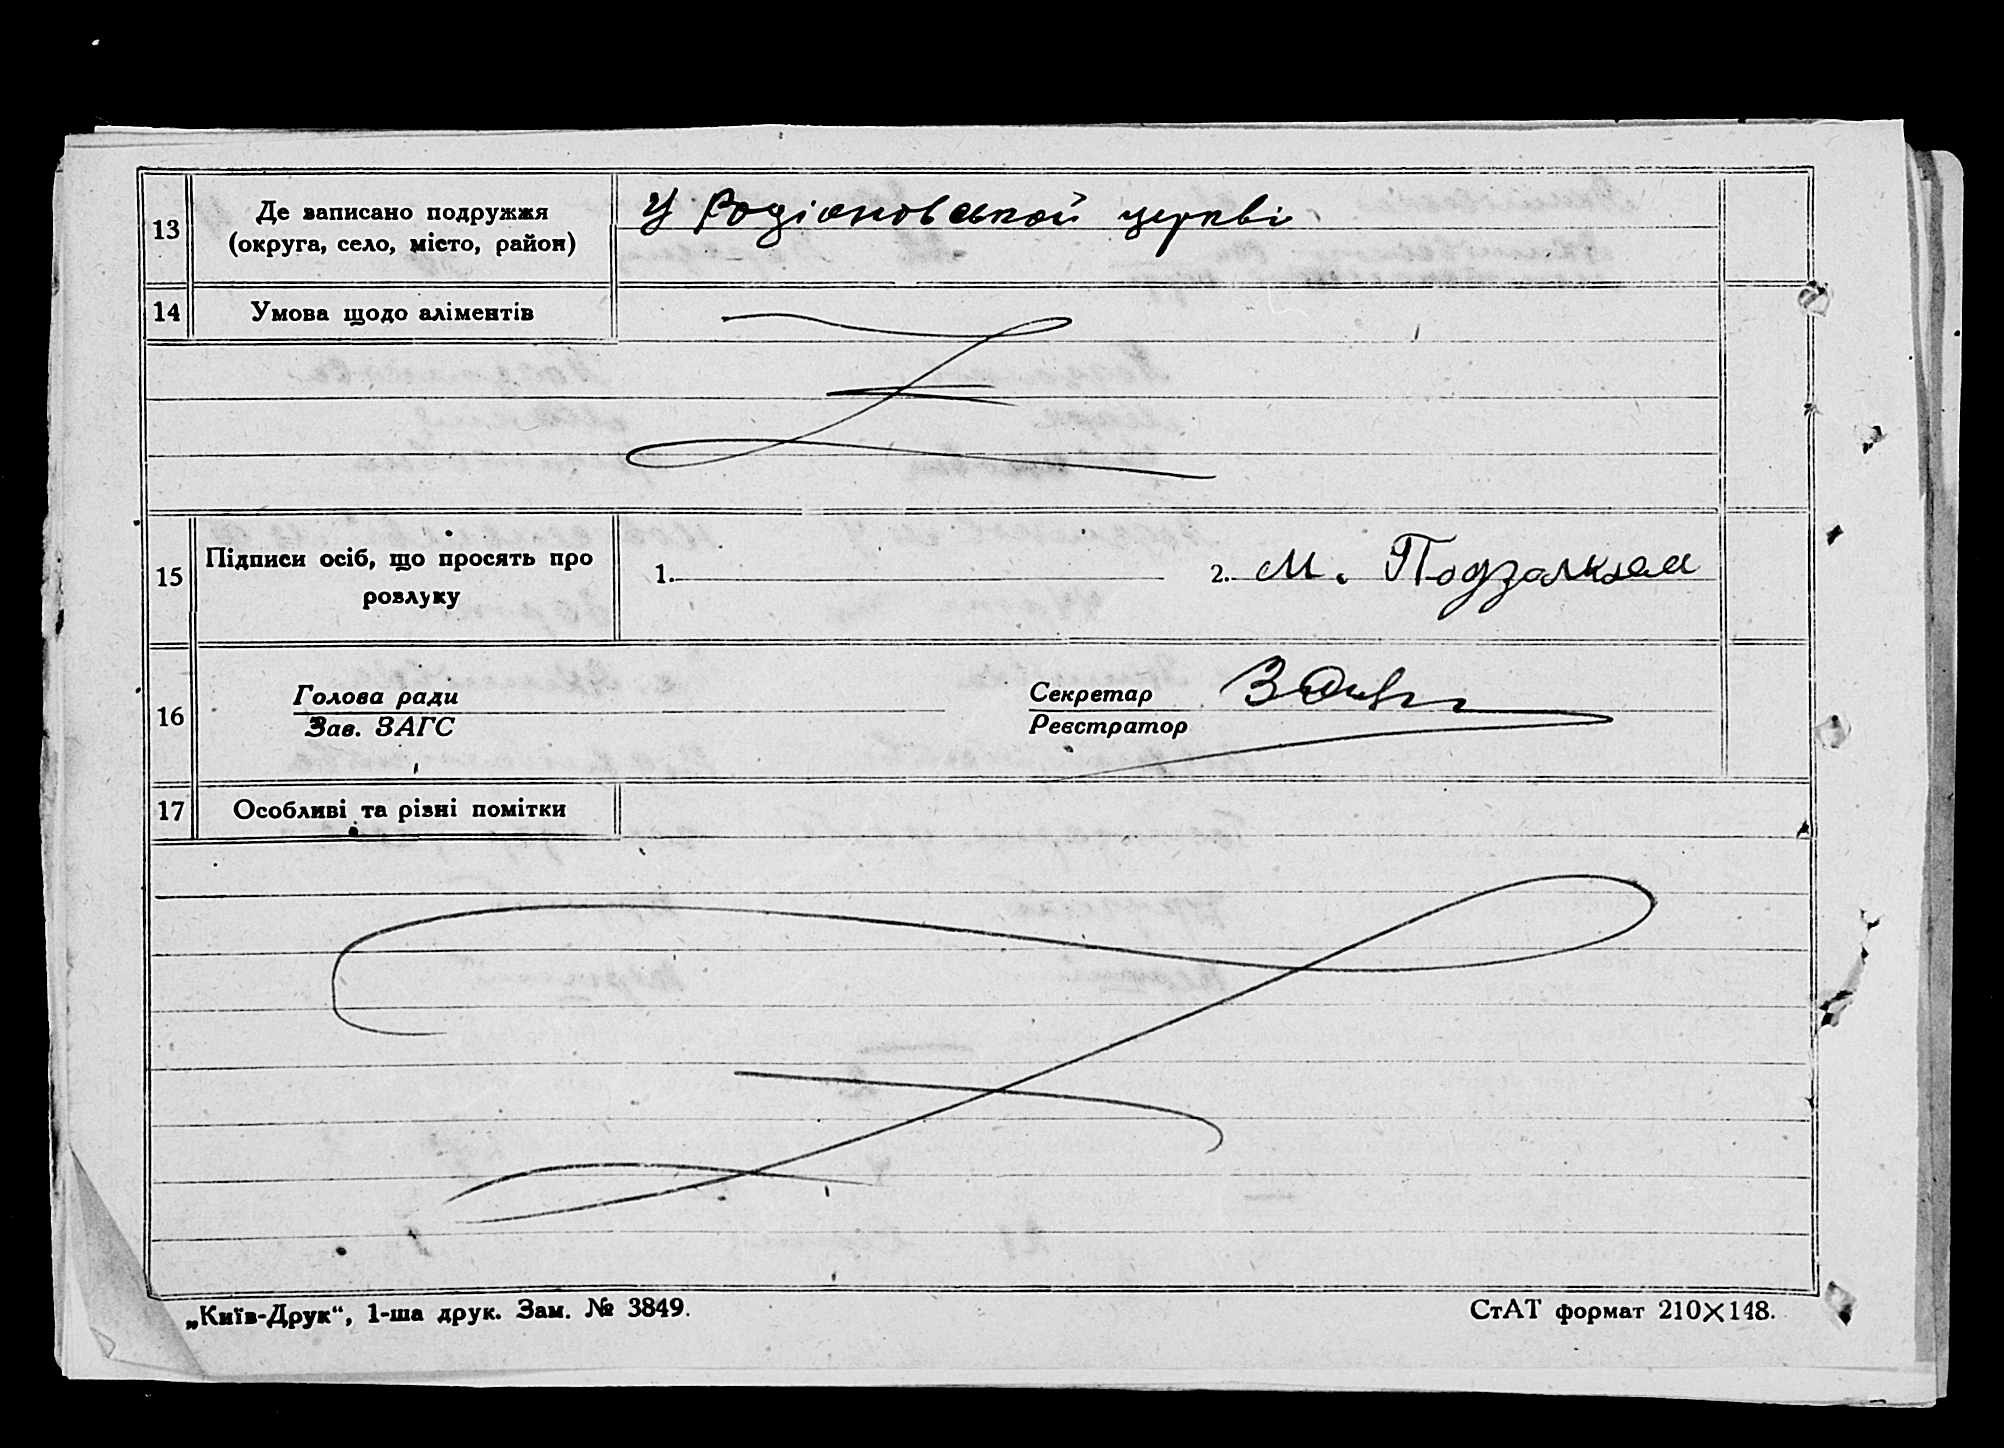 13
Де записано подружжя
(округа, село, місто, район)
У Родіоновській церкві
14
Умова щодо аліментів
15
Підписи осіб, що просять про
розлуку
1.
2. М.
16
Голова ради
Зав. ЗАГС
Секретар
Реєстратор
17
Особливі та різні помітки
„Київ-Друк“, 1-ша друк. Зам. № 3849.
СтАТ формат 210×148.